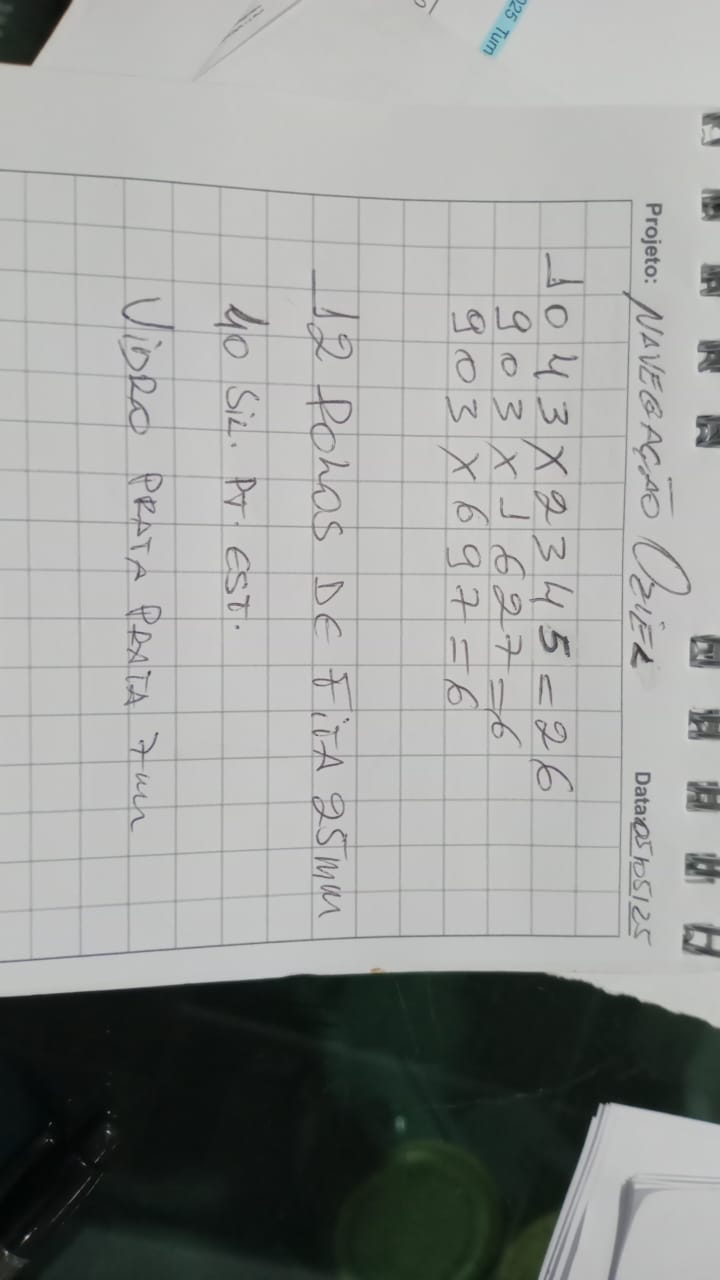 025 Tum
Projeto: NAVEGAÇÃO OZIEL Data: 05/05/25
1043 X 2345 = 26
903 X 1627 = 6
903 X 697 = 6
12 ROLOS DE FITA 25mm
40 SIL. PT. EST.
VIDRO PRATA PRATA 7mm